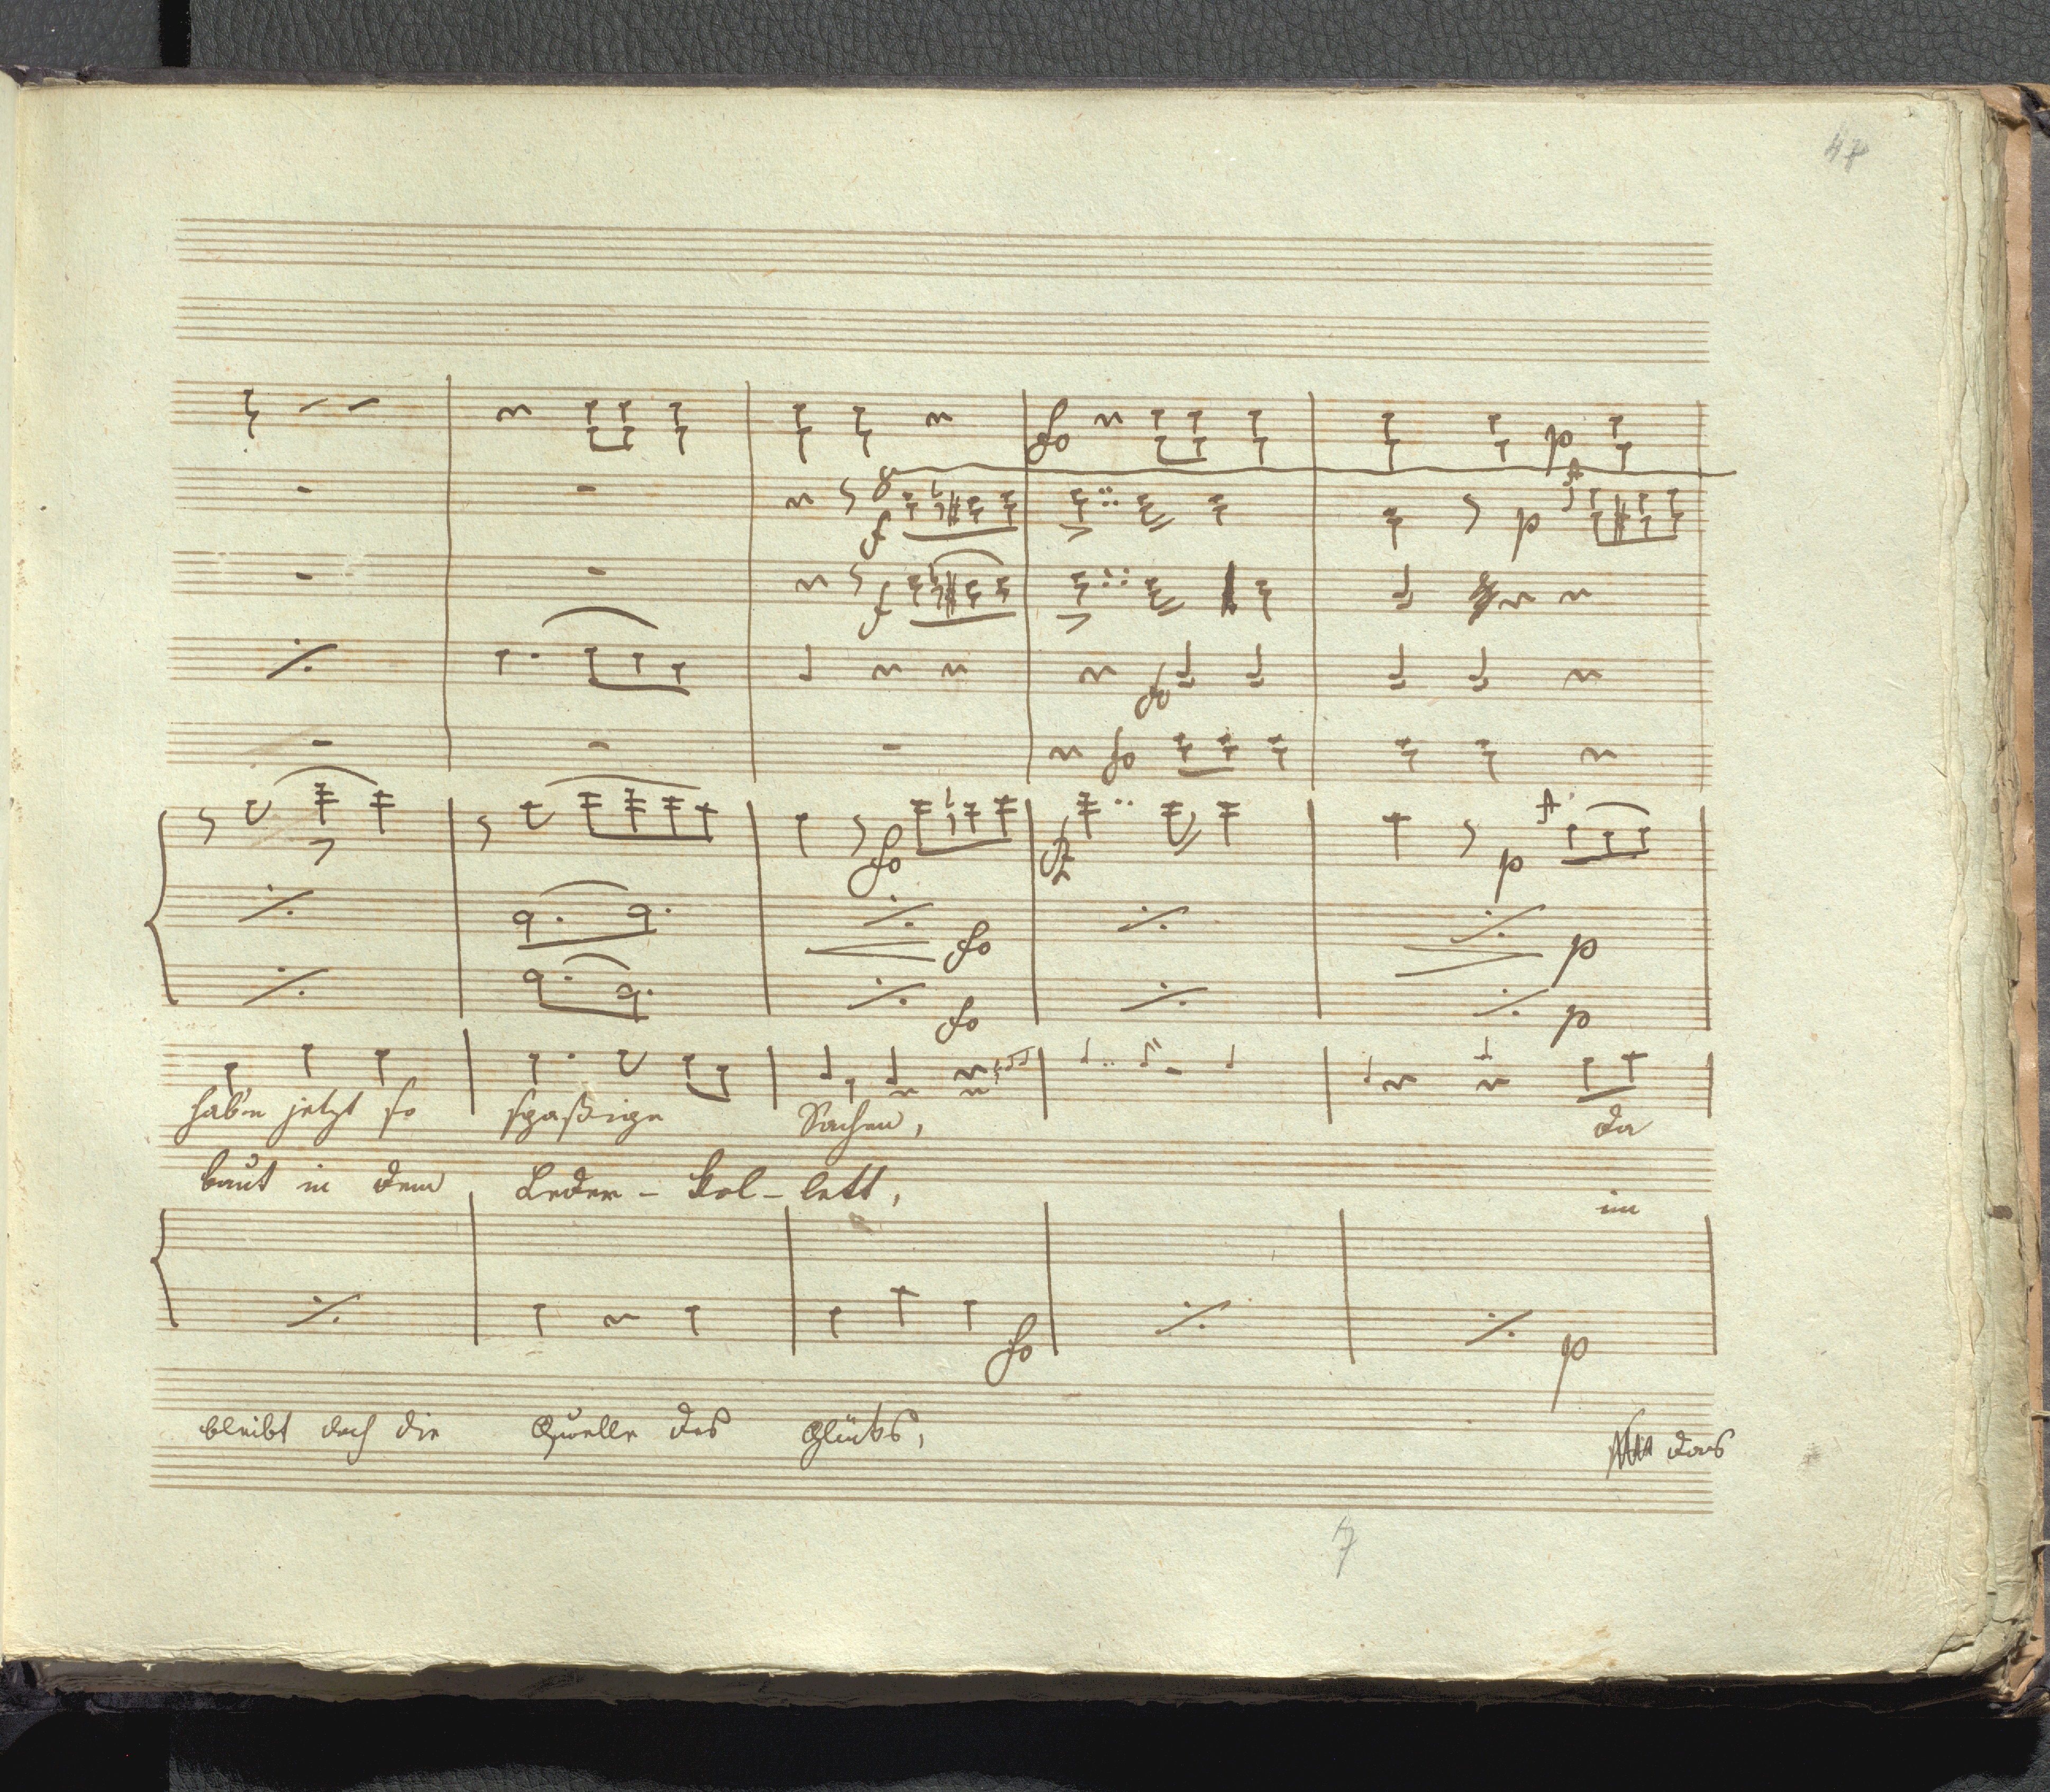 47
fo
p
8
f
A
p
f
fo
fo
fo
fz
p
A
fo
p
fo
p
hab'n jetzt so spaßige Sachen, da
baut in dem Leder - kol - lett, im
fo
p
bleibt doch die Quelle des Glücks, das
7